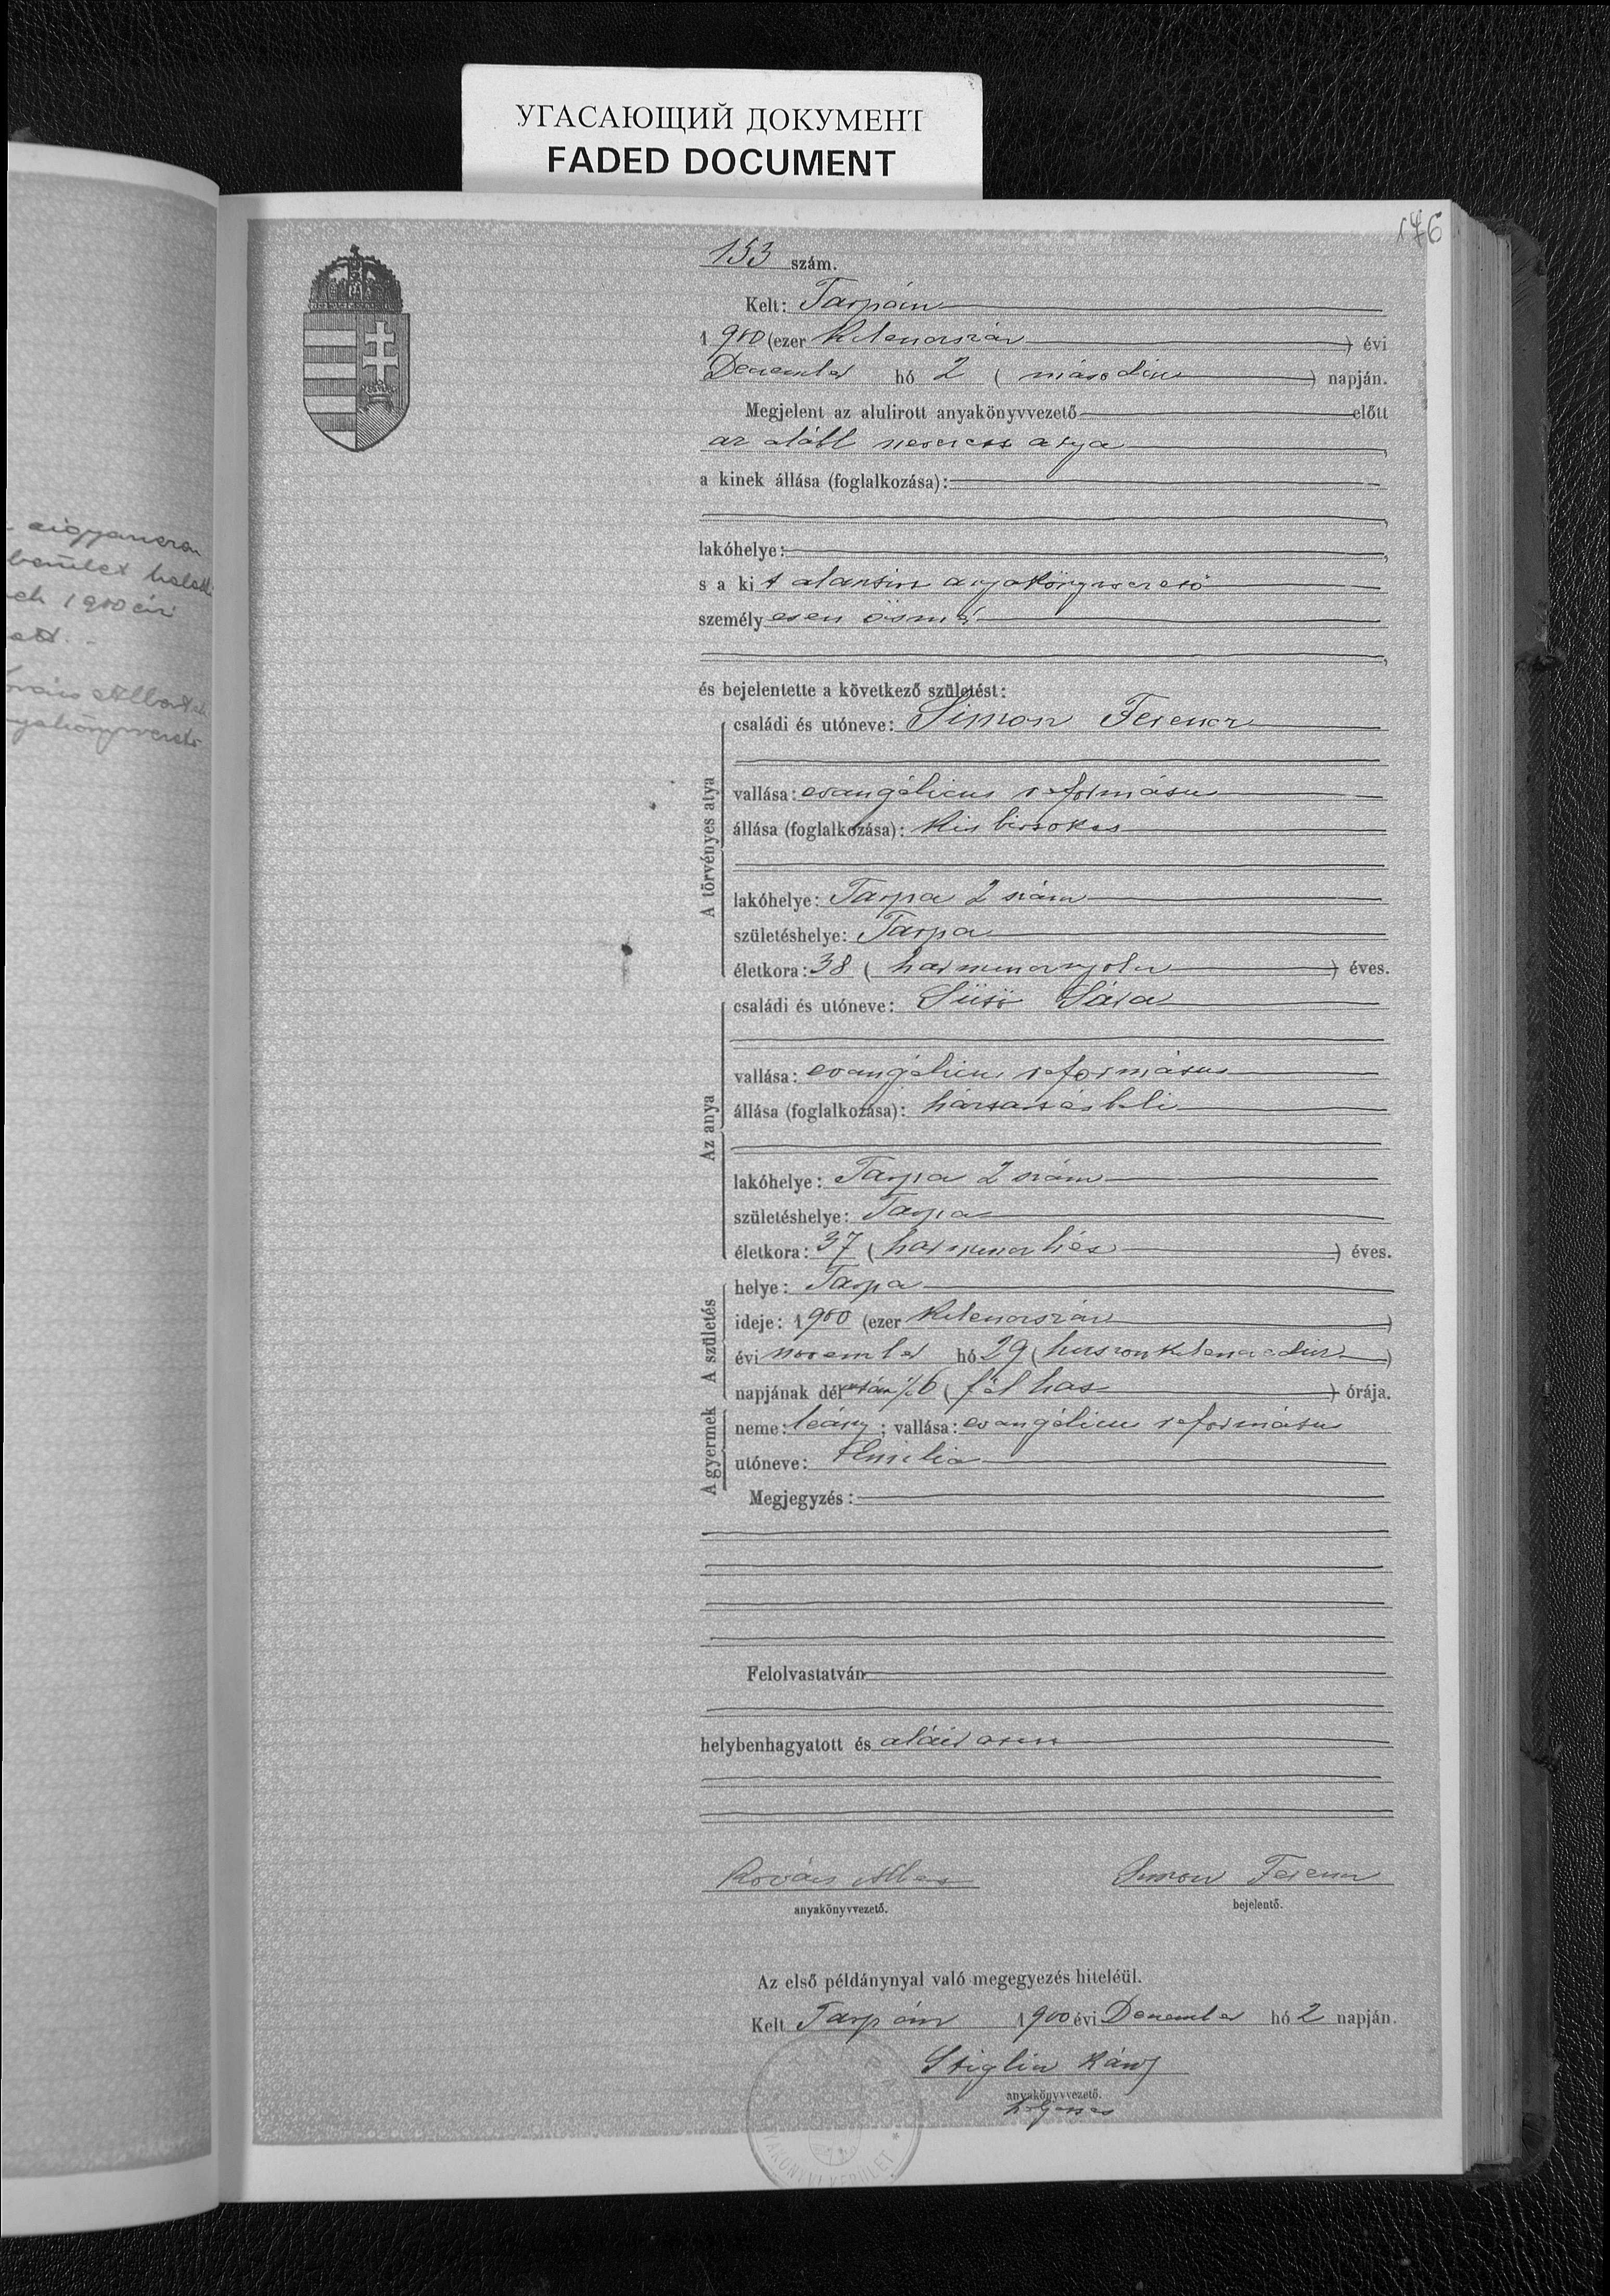 УГАСАЮЩИЙ ДОКУМЕНТ
FADED DOCUMENT
176
153 szám.
Kelt: Tarpán
1900 (ezer kilenczszáz) évi
December hó 2 (második) napján.
Megjelent az alulirott anyakönyvvezető előtt
az alább nevezett atya,
a kinek állása (foglalkozása):
lakóhelye:
s a kit alantirt anyakönyvvezető
személyesen ösmer,
és bejelentette a következő születést:
A törvényes atya
családi és utóneve: Simon Ferencz
vallása: evangélicus református
állása (foglalkozása): kis birtokos
lakóhelye: Tarpa 2 szám
születéshelye: Tarpa
életkora: 38 (harmincznyolcz) éves.
Az anya
családi és utóneve: Sütő Sára
vallása: evangélicus református
állása (foglalkozása): háztartásbeli
lakóhelye: Tarpa 2 szám
születéshelye: Tarpa
életkora: 37 (harminczhét) éves.
A születés
helye: Tarpa
ideje: 1900 (ezer kilenczszáz)
évi november hó 29 (huszonkilenczedik)
napjának délután ½6 (fél hat) órája.
A gyermek
neme: leány; vallása: evangélicus református
utóneve: Emilia
Megjegyzés:
Felolvastatván
helybenhagyatott és aláiratott
Kovács Albert Simon Ferencz
anyakönyvvezető. bejelentő.
Az első példánynyal való megegyezés hiteléül.
Kelt Tarpán 1900 évi December hó 2 napján.
anyakönyvvezető.
helyettes